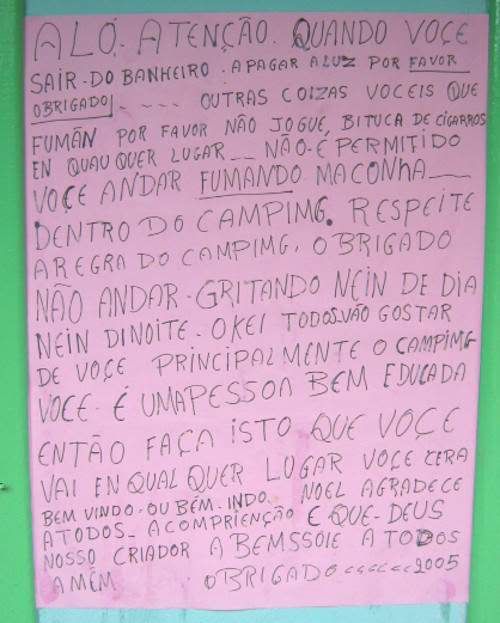 ALÓ. ATENÇÃO. QUANDO VOÇE
SAIR-DO BANHEIRO. APAGAR A LUZ POR FAVOR
OBRIGADO - - - - OUTRAS COIZAS VOCEIS QUE
FUMÃN POR FAVOR NÃO JOGUE, BITUCA DE CIGARROS
EN QUAU QUER LUGAR __ NÃO-É PERMITIDO
VOÇE ANDAR FUMANDO MACONhA __
DENTRO DO CAMPIMG. RESPEITE
A REGRA DO CAMPIMG. OBRIGADO
NÃO ANDAR-GRITANDO NEIN DE DIA
NEIN DINOITE-OKEI TODOS-VÃO GOSTAR
DE VOÇE PRINCIPALMENTE O CAMPIMG
VOCE-É UMAPESSOA BEM EDUCADA
ENTÃO FAÇA ISTO QUE VOCE
VAI EN QUALQUER LUGAR VOCE CERA
BEM VINDO-OU BÉM-INDO. NOEL AGRADECE
ATODOS-ACOMPRIENÇÃO E QUE-DEUS
NOSSO CRIADOR ABEMSSOIE A TODOS
AMÉM OBRIGADO<<<<<<2005